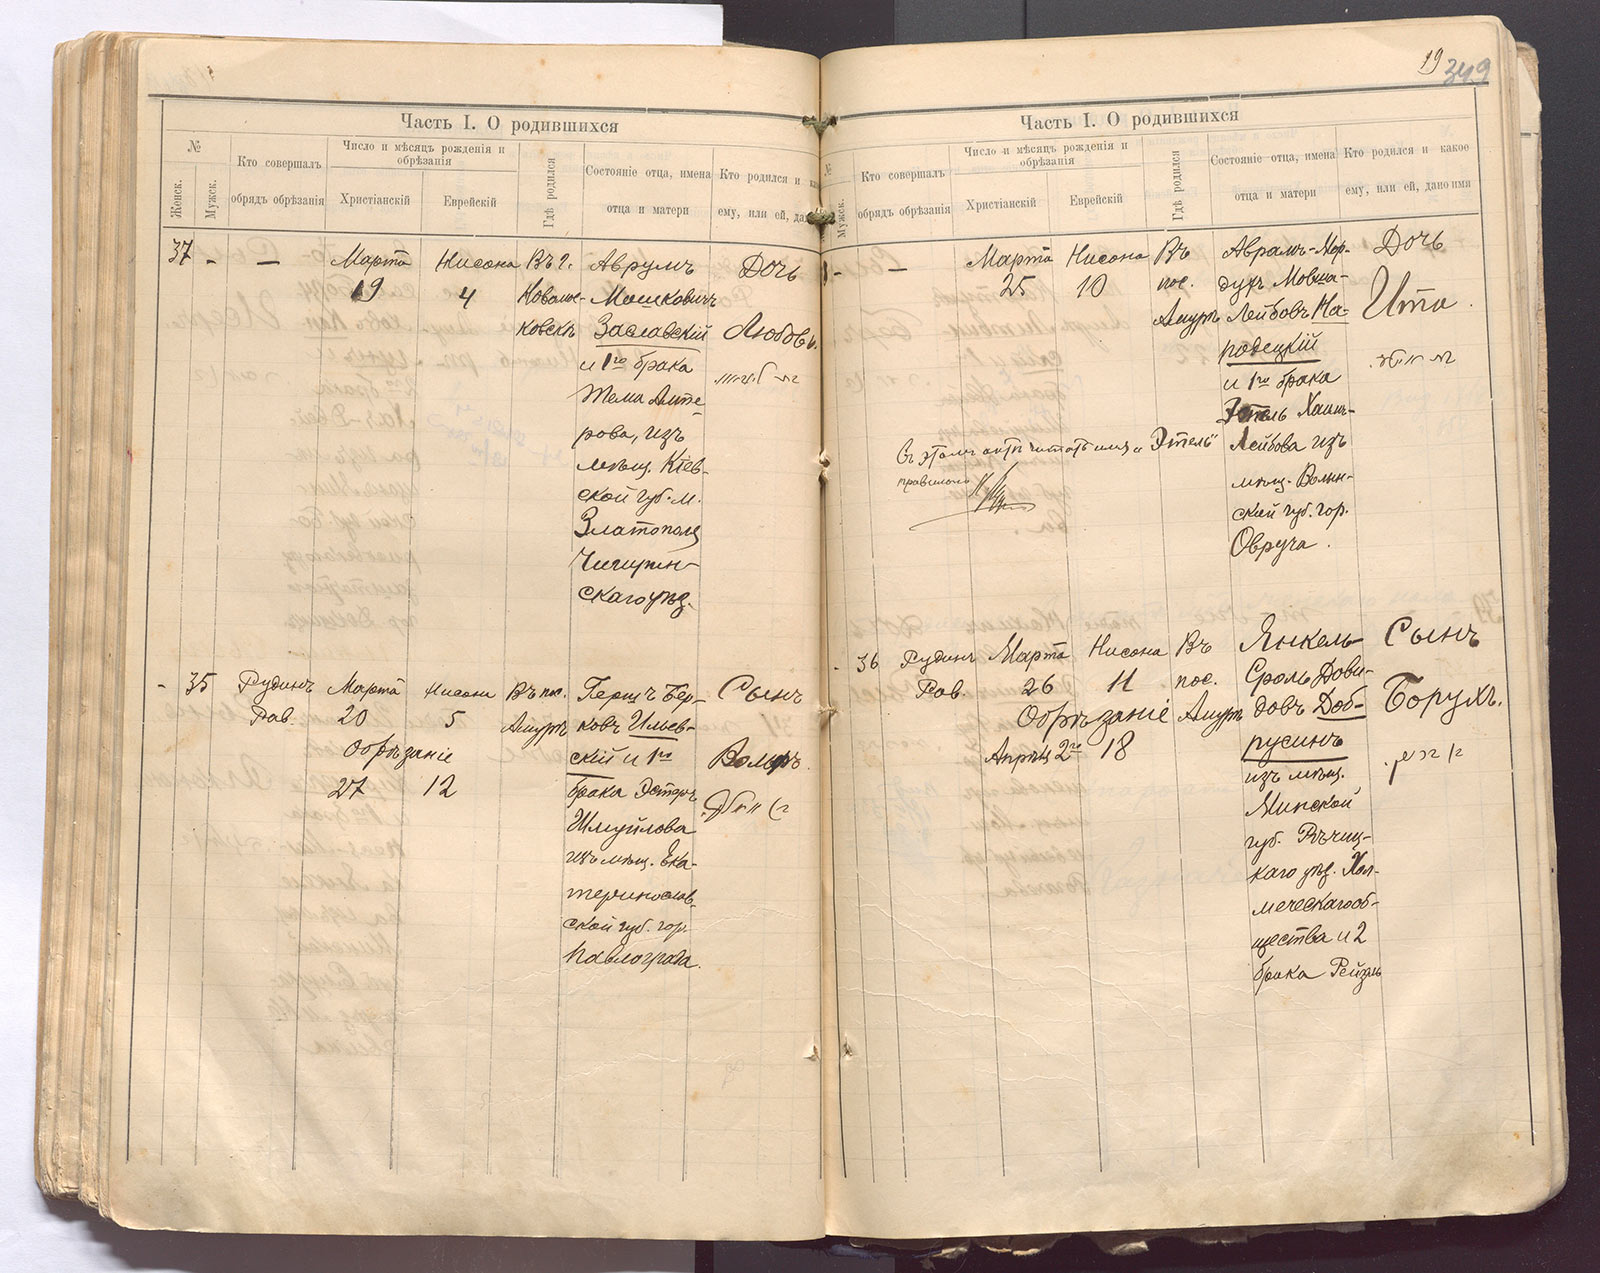 19 349
Часть I. О родившихся
№
Женск.
Мужск.
Кто совершалъ
обрядъ обрѣзанія
Число и мѣсяцъ рожденія и
обрѣзанія
Христіанскій
Еврейскій
Гдѣ родился
Состояніе отца, имена
отца и матери
Кто родился и
ему, или ей, дано
37 - —
Марта
19
Нисона
4
Въ г.
Новомос-
ковскъ
Аврумъ
Мошковичъ
Заславскій
и 1го брака
Тема Алте-
рова, изъ
мѣщ. Кіев-
ской губ. м.
Златополя
Чигирин-
скаго уѣз.
Дочь
Любовь.
- 35
Рудинъ
Рав.
Марта
20
Обрѣзаніе
27
Нисона
5
12
Въ пос.
Амуръ
Гершъ Бер-
ковъ Ильев-
скій и 1го
брака Эстеръ
Шмуйлова
изъ мѣщ. Ека-
теринослав-
ской губ. гор.
Павлограда.
Сынъ
Вольфъ.
Часть I. О родившихся
№
Мужск.
Кто совершалъ
обрядъ обрѣзанія
Число и мѣсяцъ рожденія и
обрѣзанія
Христіанскій
Еврейскій
Гдѣ родился
Состояніе отца, имена
отца и матери
Кто родился и какое
ему, или ей, дано имя
- —
Марта
25
Нисона
10
Въ
пос.
Амуръ
Аврамъ-Мор-
духъ Мовша-
Лейбовъ На-
родецкій
и 1го брака
Этель Хаимъ-
Лейбова изъ
мѣщ. Волын-
ской губ. гор.
Овруча.
Дочь
Ита.
Въ этомъ актѣ читать имя „Этель“
правильно
- 36
Рудинъ
Рав.
Марта
26
Обрѣзаніе
Апрѣля 2го
Нисона
11
18
Въ
пос.
Амуръ
Янкель-
Сроль Дови-
довъ Доб-
русинъ
изъ мѣщ.
Минской
губ. Рѣчиц-
каго уѣз. Хол-
мечскаго об-
щества и 2
брака Рейзль
Сынъ
Борухъ.